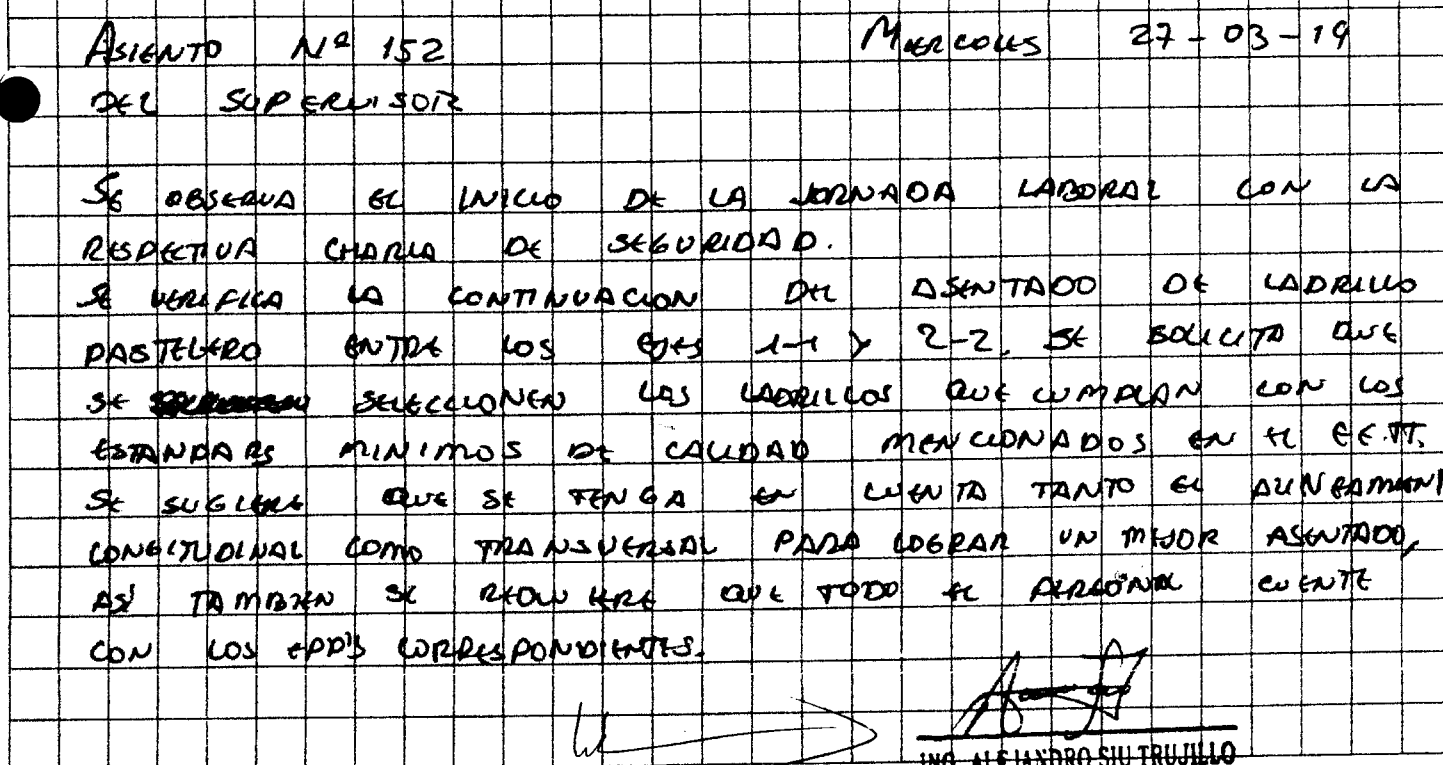 ASIENTO Nº 152 MIERCOLES 27-03-19
DEL SUPERVISOR
SE OBSERVA EL INICIO DE LA JORNADA LABORAL CON LA
RESPECTIVA CHARLA DE SEGURIDAD.
SE VERIFICA LA CONTINUACION DEL ASENTADO DE LADRILLO
PASTELERO ENTRE LOS EJES 1-1 Y 2-2. SE SOLICITA QUE
SE SELECCIONEN LOS LADRILLOS QUE CUMPLAN CON LOS
ESTANDARS MINIMOS DE CALIDAD MENCIONADOS EN EL EE.TT.
SE SUGIERE QUE SE TENGA EN CUENTA TANTO EL ALINEAMIENT
LONGITUDINAL COMO TRANSVERSAL PARA LOGRAR UN MEJOR ASENTADO,
ASÍ TAMBIEN SE REQUIERE QUE TODO EL PERSONAL CUENTE
CON LOS EPP'S CORRESPONDIENTES.
ING. ALEJANDRO SIU TRUJILLO